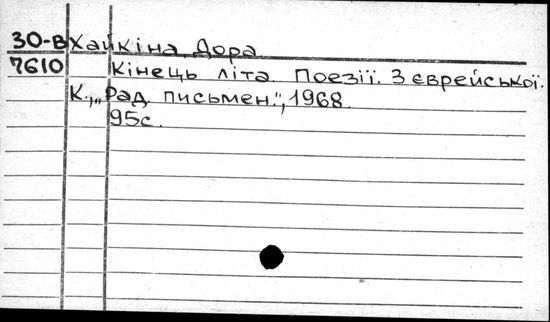 30-В Хайкіна Дора
7610 Кінець літа. Поезії. З єврейської.
К., „Рад. письмен.", 1968.
95с.